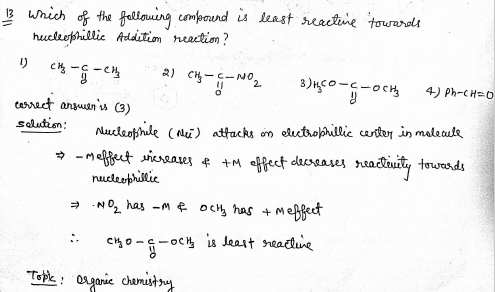 13 Which of the following compound is least reactive towards
nucleophillic Addition reaction?
1) CH3 - C - CH3 2) CH3 - C - NO2 3) H3CO - C - OCH3 4) Ph-CH=O
O O O
correct answer is (3)
Solution:
Nucleophile (Nu-) attacks on electrophillic center in molecule
⇒ -M effect increases & +M effect decreases reactivity towards
nucleophillic
⇒ NO2 has -M & OCH3 has +M effect
∴ CH3O - C - OCH3 is least reactive
O
Topic: Organic chemistry